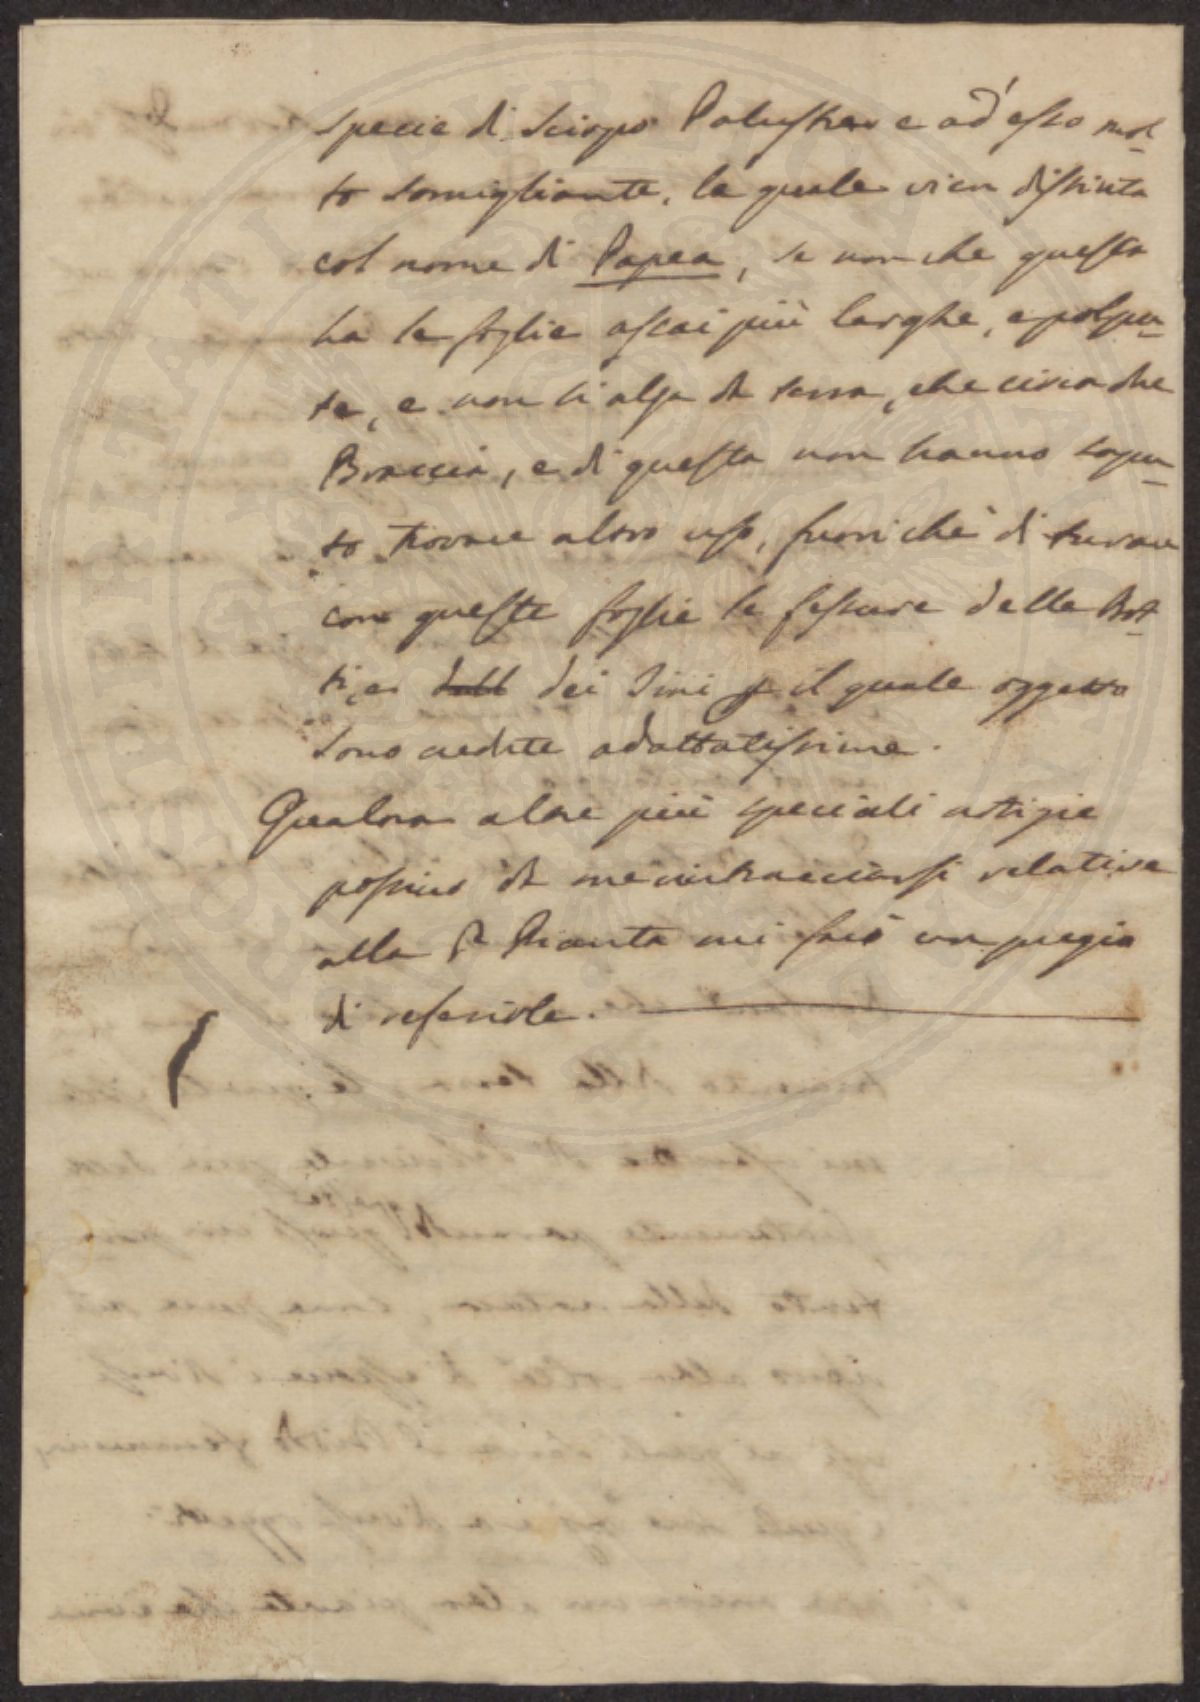 specie di Scirpo Palustre e ad'esso mol-
to somigliante, la quale vien distinta
col nome di Papea, se non che questa
ha le foglie assai più larghe, e polpu-
te, e non si alza da terra, che circa due
Braccia, e di questa non hanno sapu-
to trovare altro uso, fuori che di turare
con queste foglie le fessure delle Bot-
ti, e dei Tini il quale oggetto
sono credute adattatissime.
Qualora altre più speciali notizie
possino da me rintracciarsi relative
alla Pianta mi farò un pregio
di referirle.